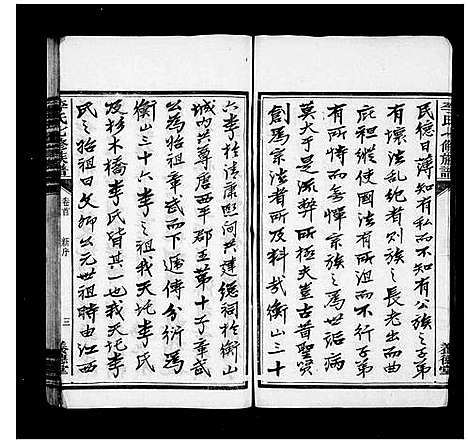 李氏七修族譜
民德日薄知有私而不知有公族之子弟
有壞法亂紀者則族之長老出而曲
庇袒縱使國法有所沮而不行子弟
有所恃而無憚宗族之為世詬病
莫大于是流弊所極夫豈古昔聖賢
創為宗法者所及料哉衡山三十
六李於清康熙間共建總祠於衡山
城內共尊唐西平郡王第十子章武
公為始祖章武而下遞傳分衍為
衡山三十六李之祖我天坑李氏
及杉木橋李氏皆其一也我天坑李
氏之始祖曰文卿公元世祖時由江西
李氏七修族譜
卷首
新序
三